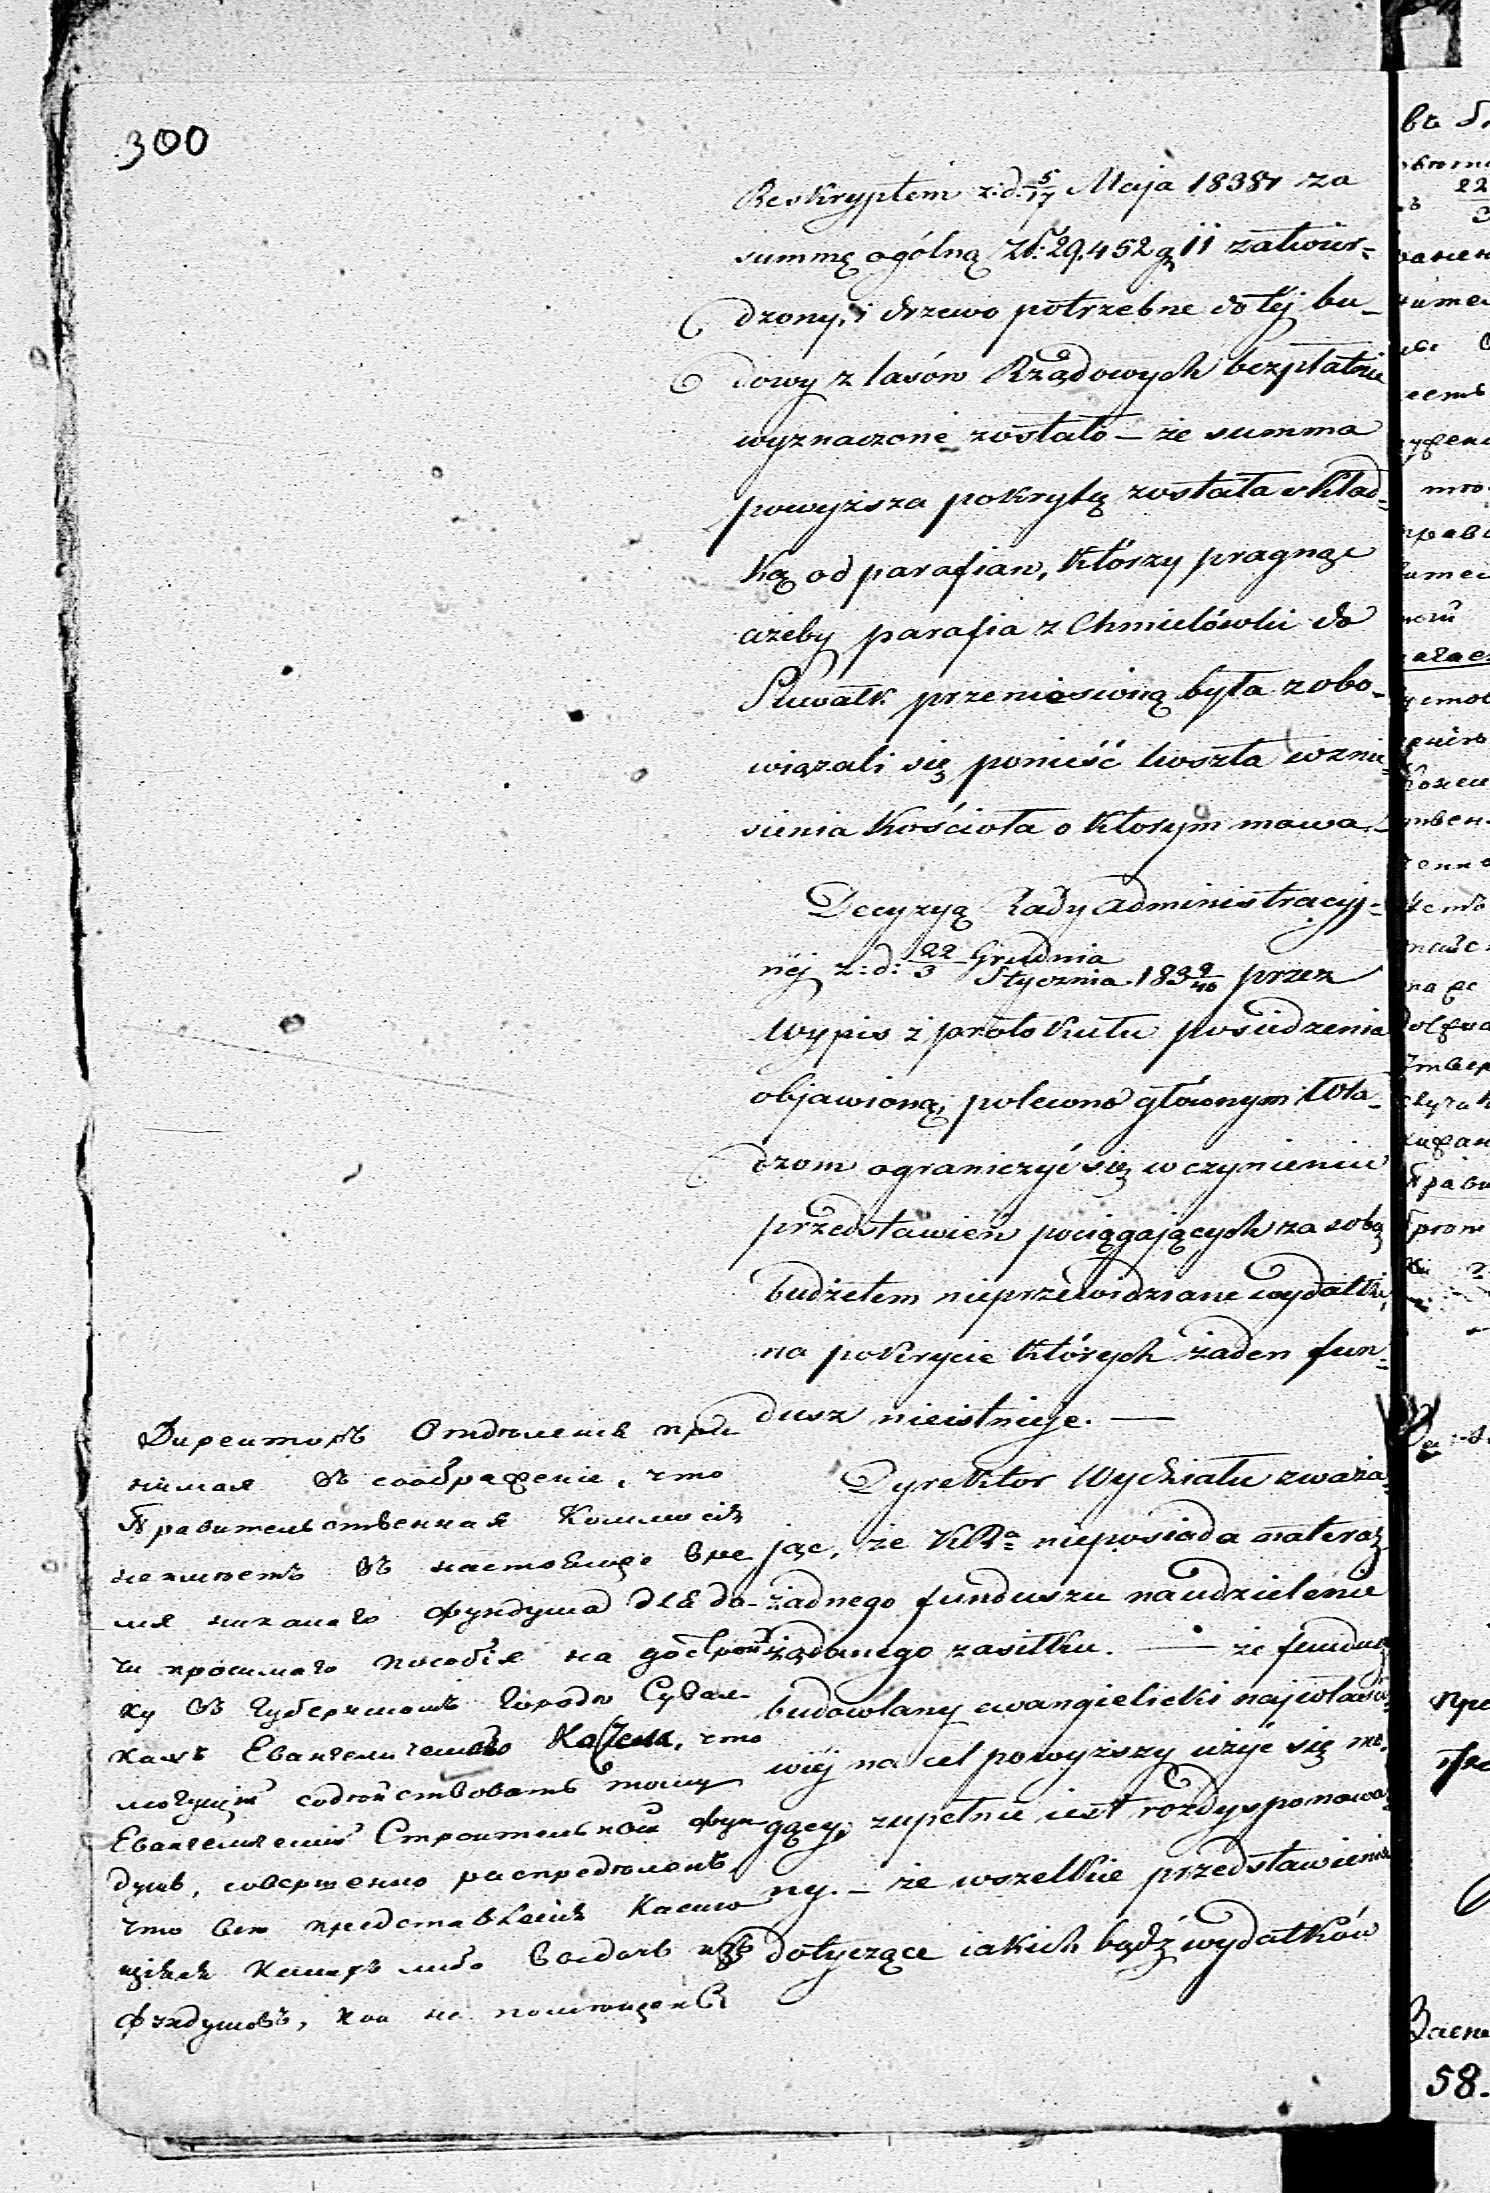 300
Reskryptem z: d. 5/17 Maja 1838 r za
summę ogólną Zł: 29,452 g 11 zatwier-
dzony, i drzewo potrzebne do téj bu-
dowy z lasów Rządowych bezpłatnie
wyznaczone zostało – że summa
powyższa pokrytą została skład-
ką od parafian, którzy pragnąc
ażeby parafia z Chmielówki do
Suwałk przeniesioną była zobo-
wiązali się ponieść koszta wznie-
sienia Kościoła o którym mowa.
Decyzyą Rady Administracyj-
néj z: d: 22/3 Grudnia/Stycznia 1839/40 przez
Wypis z protokułu posiedzenia
objawioną, polecono głównym Wła-
dzom ograniczyć się w czynieniu
przedstawień pociągających za sobą
budżetem nieprzewidziane wydatki,
na pokrycie których żaden fun-
dusz nieistnieje. —
Dyrektor Wydziału zważa-
jąc, że KRa nieposiada na teraz
żadnego funduszu na udzielenie
żądanego zasiłku. — że fundusz
budowlany ewangielicki najwłaści-
wiéj na cel powyższy użyć się mo-
gący, zupełnie jest rozdysponowa-
ny. – że wszelkie przedstawienia
dotyczące iakich bądź wydatków
Директоръ Отдѣленія при-
нимая въ соображеніе, что
Правительственная Коммисія
неимѣетъ въ настоящее вре-
мя никакого фундуша для да-
чи просимаго пособія на достройку
въ Губернскомъ Городѣ Сувал-
кахъ Евангелическаго Костела, что
могущій содѣйствовать тому
Евангелическій Строительный фун-
душъ, совершенно распредѣленъ,
что всѣ представленія касаю-
щіяся какихъ либо выдачь изъ
фундушовъ, кои не помѣщены